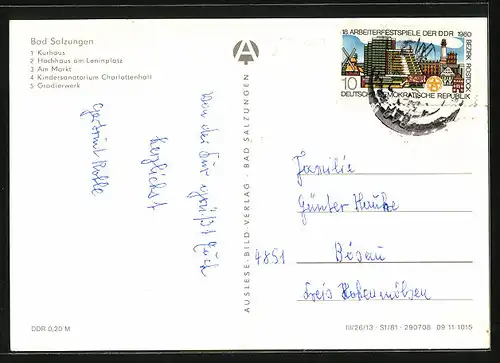 Bad Salzungen
1 Kurhaus
2 Hochhaus am Leninplatz
3 Am Markt
4 Kindersanatorium Charlottenhall
5 Gradierwerk
A
18. ARBEITERFESTSPIELE DER DDR 1980
BEZIRK ROSTOCK
10
DEUTSCHE DEMOKRATISCHE REPUBLIK
Von der Kur grüßt Euch
herzlichst
AUSLESE-BILD-VERLAG · BAD SALZUNGEN
Familie
Günter Hauke
4851 Bösau
Kreis Hohenmölsen
DDR 0,20 M
III/26/13 · St/81 · 290708 09 11 1015